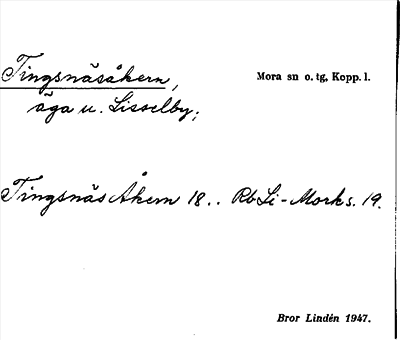 Tingsnäsåkern,
Mora sn o. tg, Kopp. l.
äga u. Lisselby;
Tingsnäs Åkern 18.. Rb Li-Morks. 19.
Bror Lindén 1947.